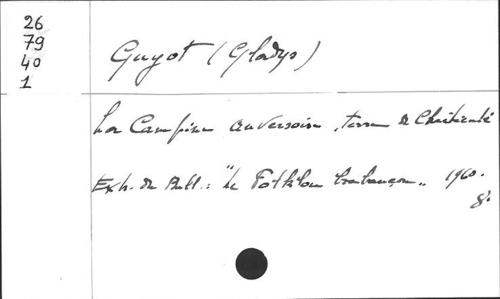 26
79
40
1
Guyot (Gladys)
La Campine anversoise, terre de Chrétienté
Extr. du Bull.: "Le Folklore brabançon„ 1960.
8°.